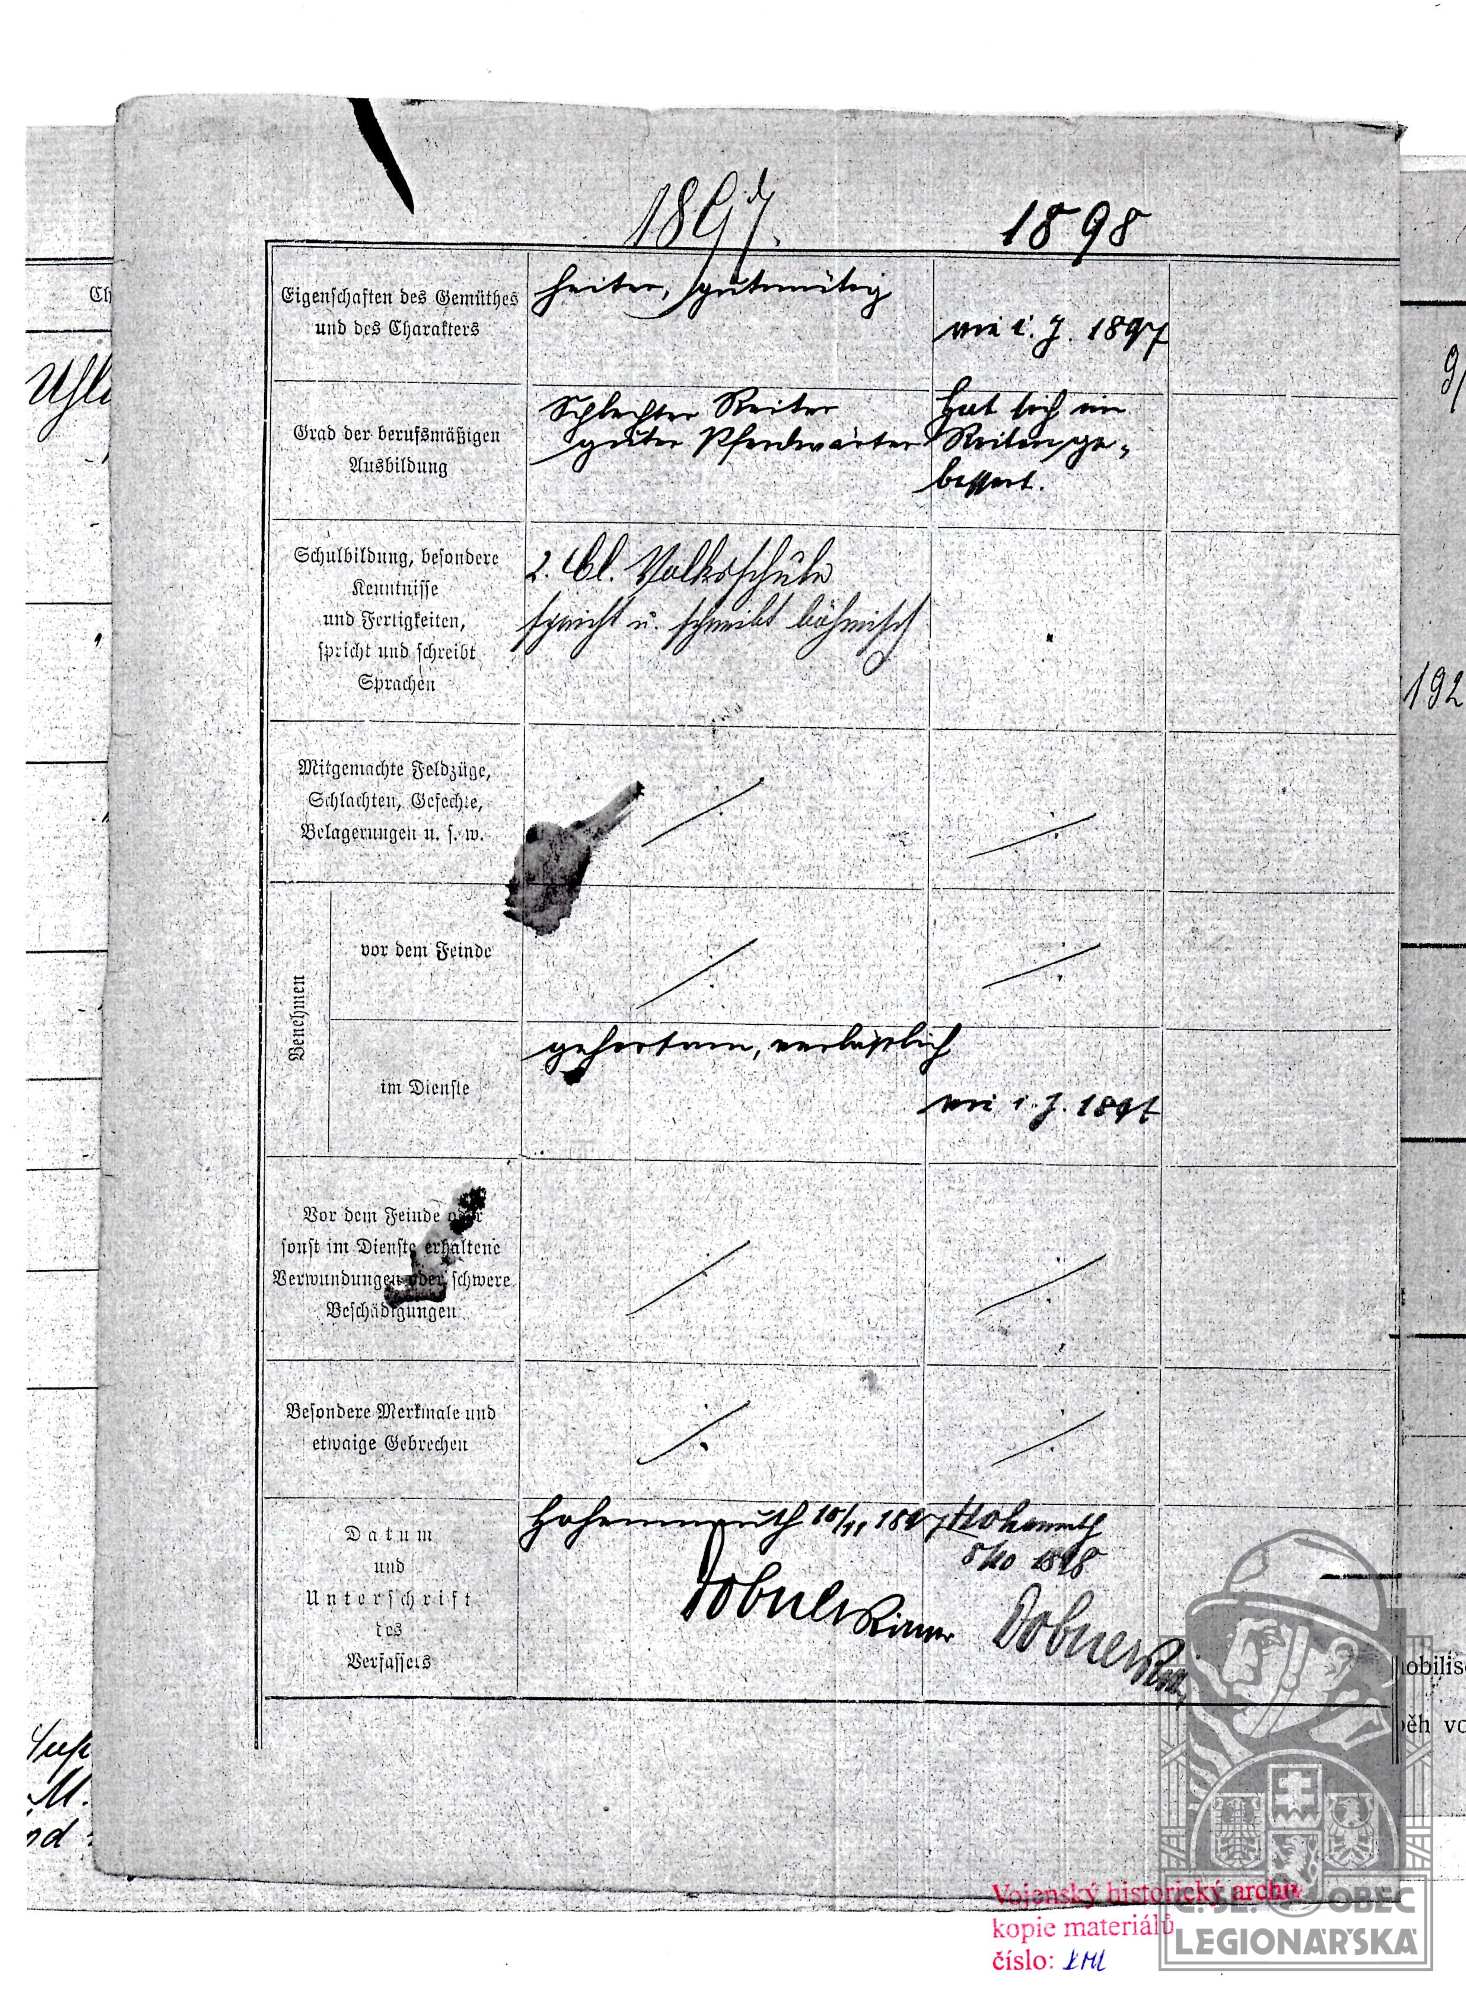 1897.
1898
Eigenschaften des Gemüthes
und des Charakters
heiter, gutmütig
wie i. J. 1897
Grad der berufsmäßigen
Ausbildung
Schlechter Reiter
guter Pferdwärter
Hat sich im
Reiten ge-
bessert.
Schulbildung, besondere
Kenntnisse
und Fertigkeiten,
spricht und schreibt
Sprachen
2. Cl. Volksschule
spricht u. schreibt böhmisch
Mitgemachte Feldzüge,
Schlachten, Gefechte,
Belagerungen u. s. w.
Benehmen
vor dem Feinde
im Dienste
gehorsam, verläßlich
wie i. J. 1897
Vor dem Feinde oder
sonst im Dienste erhaltene
Verwundungen oder schwere
Beschädigungen
Besondere Merkmale und
etwaige Gebrechen
Datum
und
Unterschrift
des
Verfassers
Hohenmauth 10/11 1897
Dobner
Hohenmth
8/10 1898
Dobner
192
Vojenský historický archiv
kopie materiálů
číslo:
Č. SL. OBEC
LEGIONÁŘSKÁ